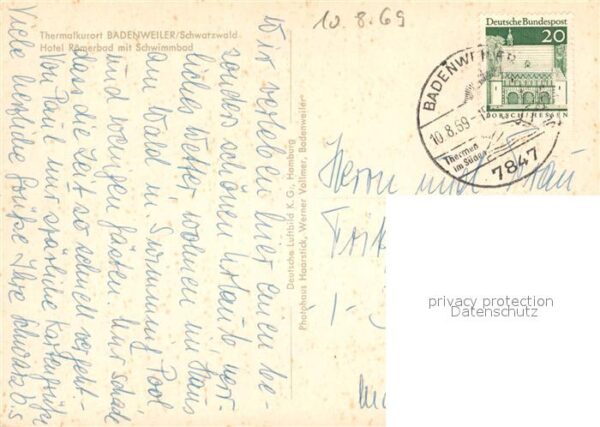 10.8.69
Thermalkurort BADENWEILER/Schwarzwald
Hotel Römerbad mit Schwimmbad
Wir verleben hier einen be-
sonders schönen Urlaub. Herr-
liches Wetter, wohnen im Haus
am Wald m. Swimming Pool
und wenigen Gästen. Nur schade
dass die Zeit so schnell vergeht -
Von Paul nur spärliche Kartengrüße
Viele herzliche Grüße Ihre Schwarz b,s
Deutsche Luftbild K.G., Hamburg
Photohaus Haarstick, Werner Vollmer, Badenweiler
Deutsche Bundespost
20
LORSCH/HESSEN
BADENWEILER
10.8.69
Thermen
im Süden
7847
Herrn und Frau
privacy protection
Datenschutz